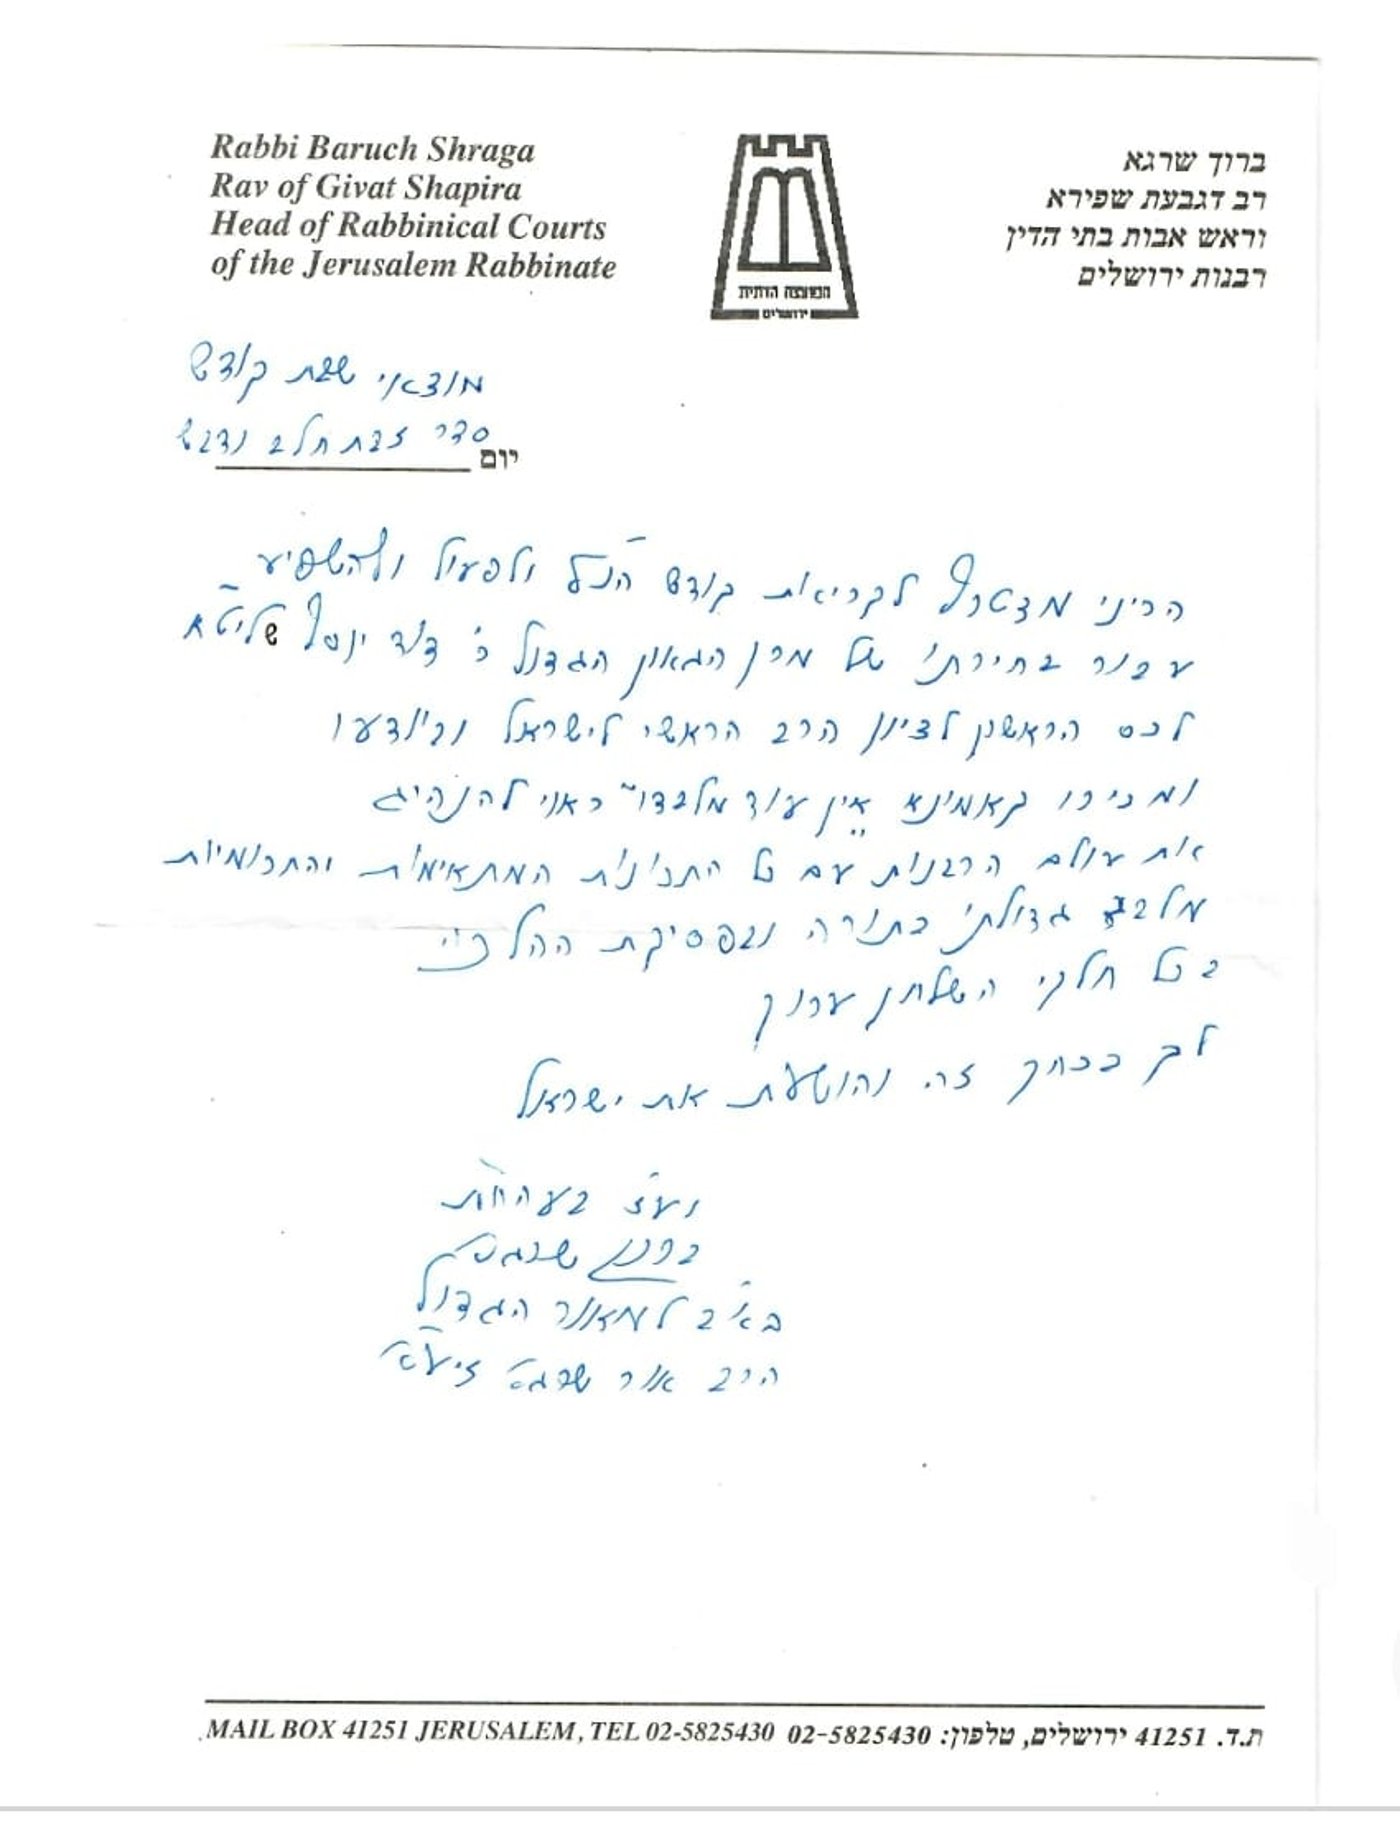 Rabbi Baruch Shraga
Rav of Givat Shapira
Head of Rabbinical Courts
of the Jerusalem Rabbinate
ברוך שרגא
רב דגבעת שפירא
וראש אבות בתי הדין
רבנות ירושלים
המועצה הדתית
ירושלים
מוצאי שבת קודש
סדר זבת חלב ודבש
יום
הריני מצטרף לקריאת קודש הנ"ל ולפעול ולהשפיע
עבור בחירתו של מרן הגאון הגדול ר' דוד יוסף שליט"א
לכס הראשון לציון הרב הראשי לישראל וביודעו
ומכירו קאמינא אין עוד מלבדו" ראוי להנהיג
את עולם הרבנות עם כל התכונות המתאימות והתרומיות
מלבד גדולתו בתורה ובפסיקת ההלכה
בכל חלקי השלחן ערוך
לך בכחך זה והושעת את ישראל
ועז"ח בעה"ח
ברוך שרגא
בא"ב למאור הגדול
הרב אור שרגא זיע"א
MAIL BOX 41251 JERUSALEM, TEL 02-5825430 ת.ד. 41251 ירושלים, טלפון: 02-5825430